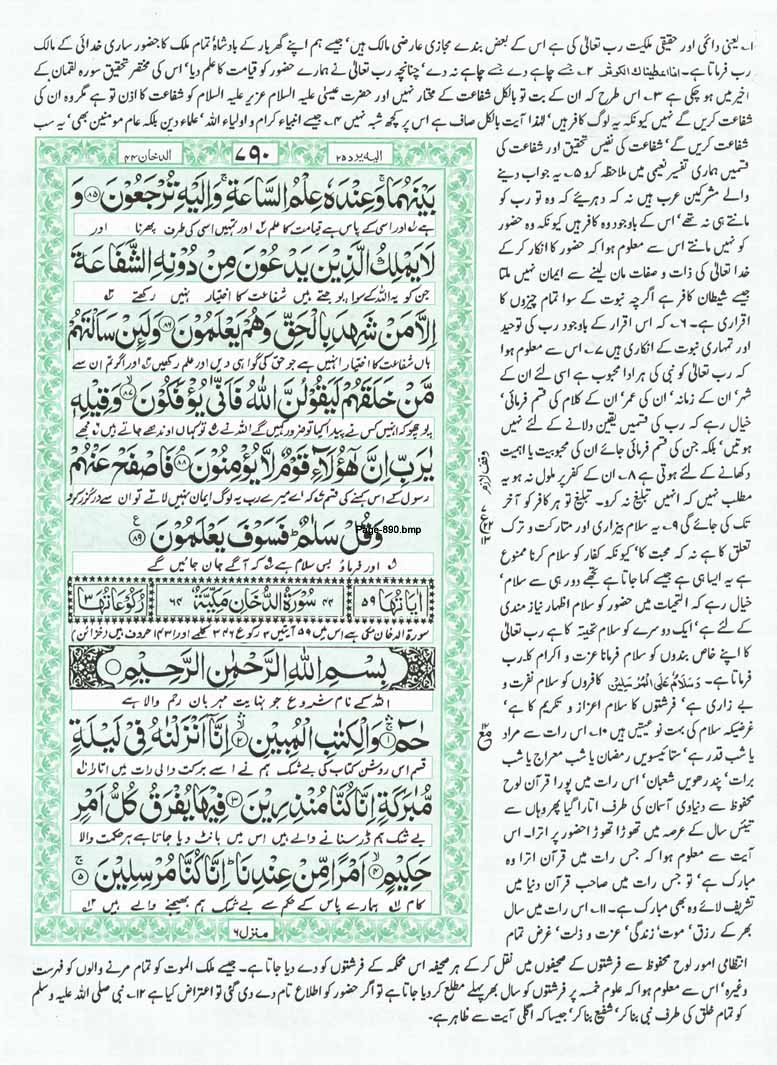 ۱؎ یعنی دائمی اور حقیقی ملکیت رب تعالیٰ کی ہے اس کے بعض بندے مجازی عارضی مالک ہیں' جیسے ہم اپنے گھر بار کے بادشاہ تمام ملک کا حضور ساری خدائی کے مالک
رب فرماتا ہے۔ انا اعطیناک الکوثر ۲؎ جسے چاہے دے جسے چاہے نہ دے' چنانچہ رب تعالیٰ نے ہمارے حضور کو قیامت کا علم دیا' اس کی مختصر تحقیق سورہ لقمان کے
اخیر میں ہو چکی ہے ۳؎ اس طرح کہ ان کے بت تو بالکل شفاعت کے مختار نہیں اور حضرت عیسیٰ علیہ السلام عزیر علیہ السلام کو شفاعت کا اذن تو ہے مگر وہ ان کی
شفاعت کریں گے نہیں کیونکہ یہ لوگ کافر ہیں' لہٰذا آیت بالکل صاف ہے اس پر کچھ شبہ نہیں ۴؎ جیسے انبیاء کرام و اولیاء اللہ' علماء دین بلکہ عام مومنین بھی' یہ سب
شفاعت کریں گے' شفاعت کی نفیس تحقیق اور شفاعت کی
قسمیں ہماری تفسیر نعیمی میں ملاحظہ کرو ۵؎ یہ جواب دینے
والے مشرکین عرب ہیں نہ کہ دہریئے کہ وہ تو رب کو
مانتے ہی نہ تھے' اس کے باوجود وہ کافر ہیں کیونکہ وہ حضور
کو نہیں مانتے اس سے معلوم ہوا کہ حضور کا انکار کر کے
خدا تعالیٰ کی ذات و صفات مان لینے سے ایمان نہیں ملتا
جیسے شیطان کافر ہے اگرچہ نبوت کے سوا تمام چیزوں کا
اقراری ہے۔ ۶؎ کہ اس اقرار کے باوجود رب کی توحید
اور تمہاری نبوت کے انکاری ہیں ۷؎ اس سے معلوم ہوا
کہ رب تعالیٰ کو نبی کی ہر ادا محبوب ہے اسی لئے ان کے
شہر' ان کے زمانہ' ان کی عمر' ان کے کلام کی قسم فرمائی'
خیال رہے کہ رب کی قسمیں یقین دلانے کے لئے نہیں
ہوتیں' بلکہ جن کی قسم فرمائی جائے ان کی محبوبیت یا اہمیت
دکھانے کے لئے ہوتی ہے ۸؎ ان کے کفر پر ملول نہ ہو یہ
مطلب نہیں کہ انہیں تبلیغ نہ کرو۔ تبلیغ تو ہر کافر کو آخر
تک کی جائے گی ۹؎ یہ سلام بیزاری اور متارکت و ترک
تعلق کا ہے نہ کہ محبت کا' کیونکہ کفار کو سلام کرنا ممنوع
ہے یہ ایسا ہی ہے جیسے کہا جاتا ہے تجھے دور ہی سے سلام'
خیال رہے کہ التحیات میں حضور کو سلام اظہار نیاز مندی
کے لئے ہے' ایک دوسرے کو سلام تحیتہ کا ہے رب تعالیٰ
کا اپنے خاص بندوں کو سلام فرمانا عزت و اکرام کا۔ رب
فرماتا ہے۔ وسلام علی المرسلین کافروں کو سلام نفرت و
بے زاری ہے' فرشتوں کا سلام اعزاز و تکریم کا ہے'
غرضیکہ سلام کی بہت نوعیتیں ہیں ۱۰؎ اس رات سے مراد
یا شب قدر ہے' ستائیسویں رمضان یا شب معراج یا شب
برات' پندرھویں شعبان' اس رات میں پورا قرآن لوح
محفوظ سے دنیاوی آسمان کی طرف اتارا گیا پھر وہاں سے
تیئس سال کے عرصہ میں تھوڑا تھوڑا حضور پر اترا۔ اس
آیت سے معلوم ہوا کہ جس رات میں قرآن اترا وہ
مبارک ہے' تو جس رات میں صاحب قرآن دنیا میں
تشریف لائے وہ بھی مبارک ہے۔ ۱۱؎ اس رات میں سال
بھر کے رزق' موت' زندگی' عزت و ذلت' غرض تمام
الیہ یرد ۲۵
۷۹۰
الدخان ۴۴
بَيْنَهُمَا ۚ وَعِنْدَهٗ عِلْمُ السَّاعَةِ ۚ وَاِلَيْهِ تُرْجَعُوْنَ ﴿۸۵﴾ وَ
ہے ۱؎ اور اسی کے پاس ہے قیامت کا علم ۲؎ اور تمہیں اسی کی طرف پھرنا اور
لَا يَمْلِكُ الَّذِيْنَ يَدْعُوْنَ مِنْ دُوْنِهِ الشَّفَاعَةَ
جن کو یہ اللہ کے سوا پوجتے ہیں شفاعت کا اختیار نہیں رکھتے ۳؎
اِلَّا مَنْ شَهِدَ بِالْحَقِّ وَهُمْ يَعْلَمُوْنَ ﴿۸۶﴾ وَلَئِنْ سَاَلْتَهُمْ
ہاں شفاعت کا اختیار انہیں ہے جو حق کی گواہی دیں اور علم رکھیں ۴؎ اور اگر تم ان سے
مَّنْ خَلَقَهُمْ لَيَقُوْلُنَّ اللّٰهُ فَاَنّٰى يُؤْفَكُوْنَ ﴿۸۷﴾ وَقِيْلِهٖ
پوچھو کہ انہیں کس نے پیدا کیا تو ضرور کہیں گے اللہ نے ۵؎ تو کہاں اوندھے جاتے ہیں ۶؎ مجھے
يٰرَبِّ اِنَّ هٰٓؤُلَآءِ قَوْمٌ لَّا يُؤْمِنُوْنَ ﴿۸۸﴾ فَاصْفَحْ عَنْهُمْ
رسول کے اس کہنے کی قسم ۷؎ کہ اے میرے رب یہ لوگ ایمان نہیں لاتے تو ان سے درگزر کرو
وَقُلْ سَلٰمٌ ۗ فَسَوْفَ يَعْلَمُوْنَ ﴿۸۹﴾
Page-890.bmp
۸؎ اور فرماؤ بس سلام ہے ۹؎ کہ آگے جان جائیں گے
اٰیاتھا ۵۹
۴۴ سُوْرَةُ الدُّخَانِ مَكِّيَّةٌ ۶۴
رکوعاتھا ۳
سورۃ الدخان مکی ہے اس میں ۵۹ آیتیں ۳ رکوع ۳۴۶ کلمے اور ۱۴۳۱ حروف ہیں (خزائن)
بِسْمِ اللّٰهِ الرَّحْمٰنِ الرَّحِيْمِ
اللہ کے نام سے شروع جو نہایت مہربان رحم والا ہے
حٰمٓ ﴿۱﴾ وَالْكِتٰبِ الْمُبِيْنِ ﴿۲﴾ اِنَّآ اَنْزَلْنٰهُ فِيْ لَيْلَةٍ
قسم اس روشن کتاب کی بے شک ہم نے اسے برکت والی رات میں اتارا ۱۰؎
مُّبٰرَكَةٍ اِنَّا كُنَّا مُنْذِرِيْنَ ﴿۳﴾ فِيْهَا يُفْرَقُ كُلُّ اَمْرٍ
بے شک ہم ڈر سنانے والے ہیں اس میں بانٹ دیا جاتا ہے ہر حکمت والا
حَكِيْمٍ ﴿۴﴾ اَمْرًا مِّنْ عِنْدِنَا ۗ اِنَّا كُنَّا مُرْسِلِيْنَ ﴿۵﴾
کام ۱۱؎ ہمارے پاس کے حکم سے بے شک ہم بھیجنے والے ہیں ۱۲؎
منزل ۶
وقف لازم
انتظامی امور لوح محفوظ سے فرشتوں کے صحیفوں میں نقل کر کے ہر صحیفہ اس محکمہ کے فرشتوں کو دے دیا جاتا ہے۔ جیسے ملک الموت کو تمام مرنے والوں کو فہرست
وغیرہ' اس سے معلوم ہوا کہ علوم خمسہ پر فرشتوں کو سال بھر پہلے مطلع کر دیا جاتا ہے تو اگر حضور کو اطلاع تام دے دی گئی تو اعتراض کیا ہے ۱۲؎ نبی صلی اللہ علیہ وسلم
کو تمام خلق کی طرف نبی بنا کر' شفیع بنا کر' جیسا کہ اگلی آیت سے ظاہر ہے۔